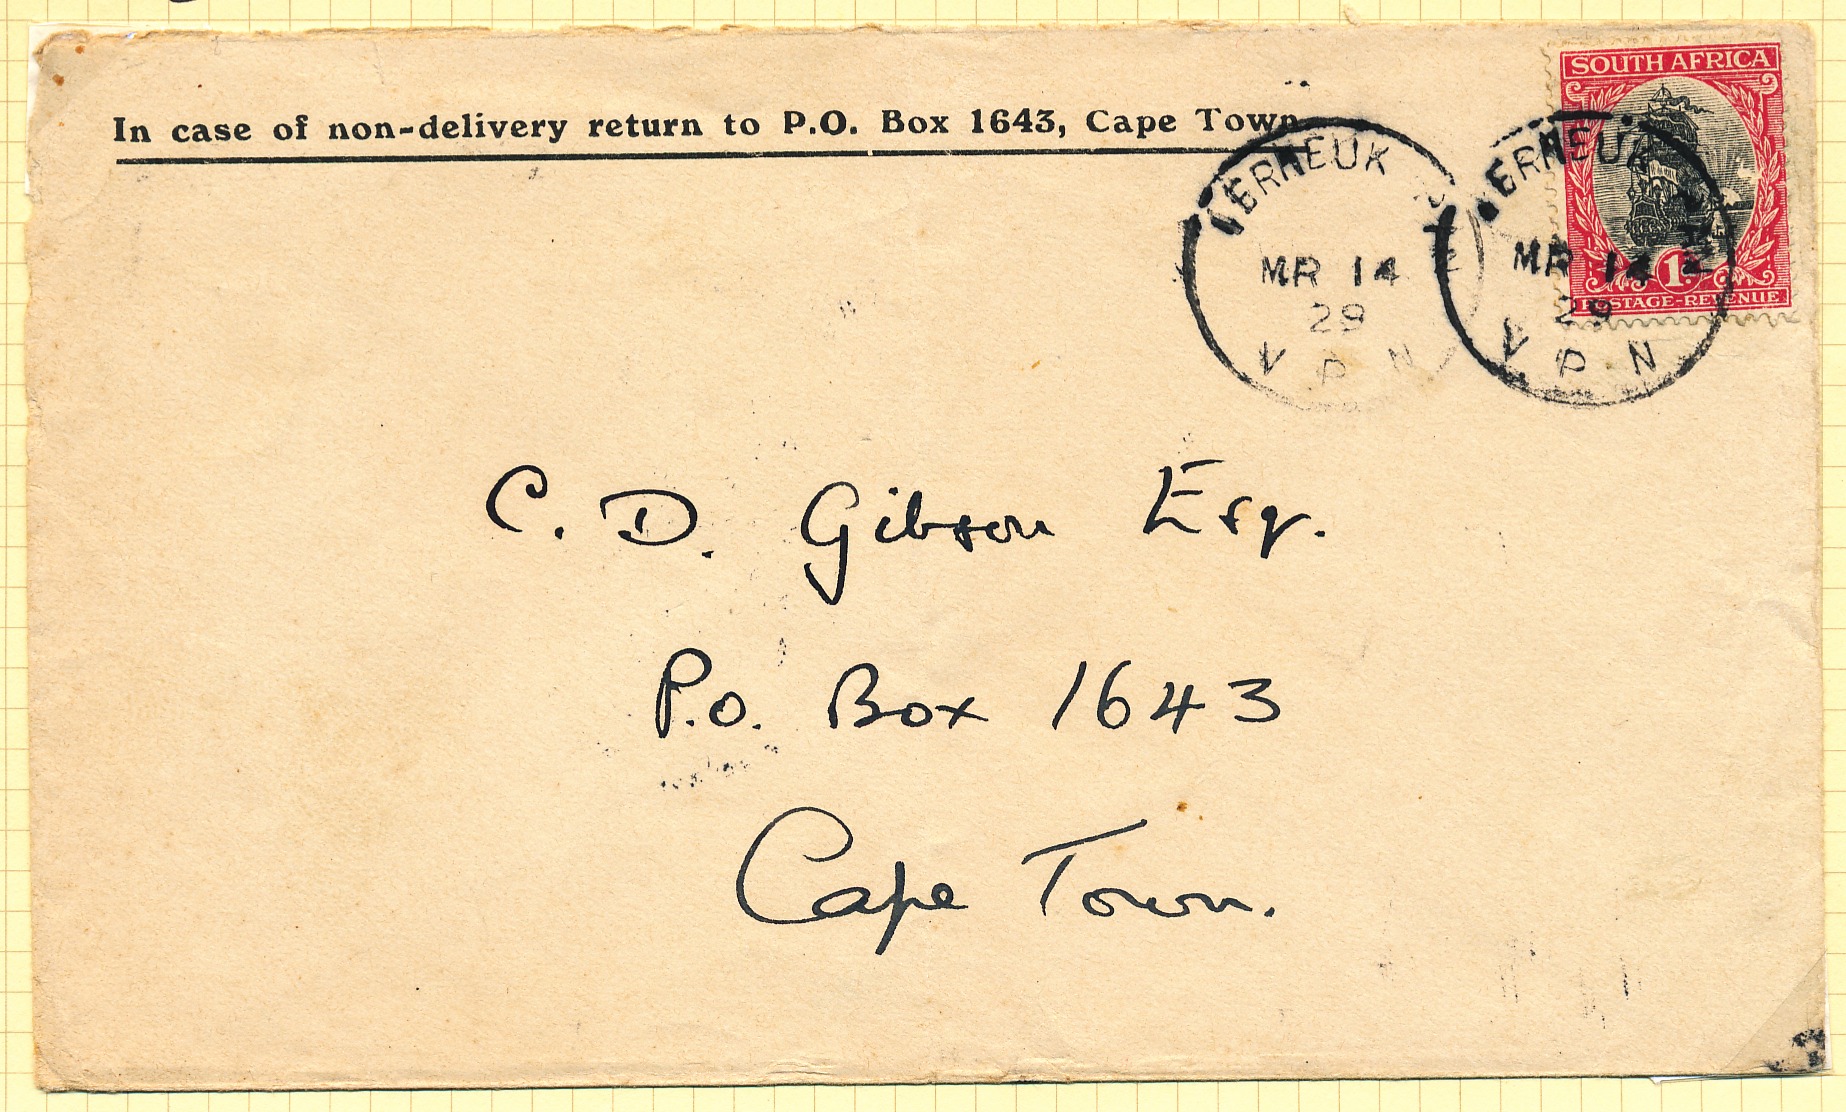 In case of non-delivery return to P.O. Box 1643, Cape Town
SOUTH AFRICA
1D.
POSTAGE-REVENUE
MR 14
29
V P N
MR 14
29
V P N
C. D. Gibson Esq.
P.O. Box 1643
Cape Town.